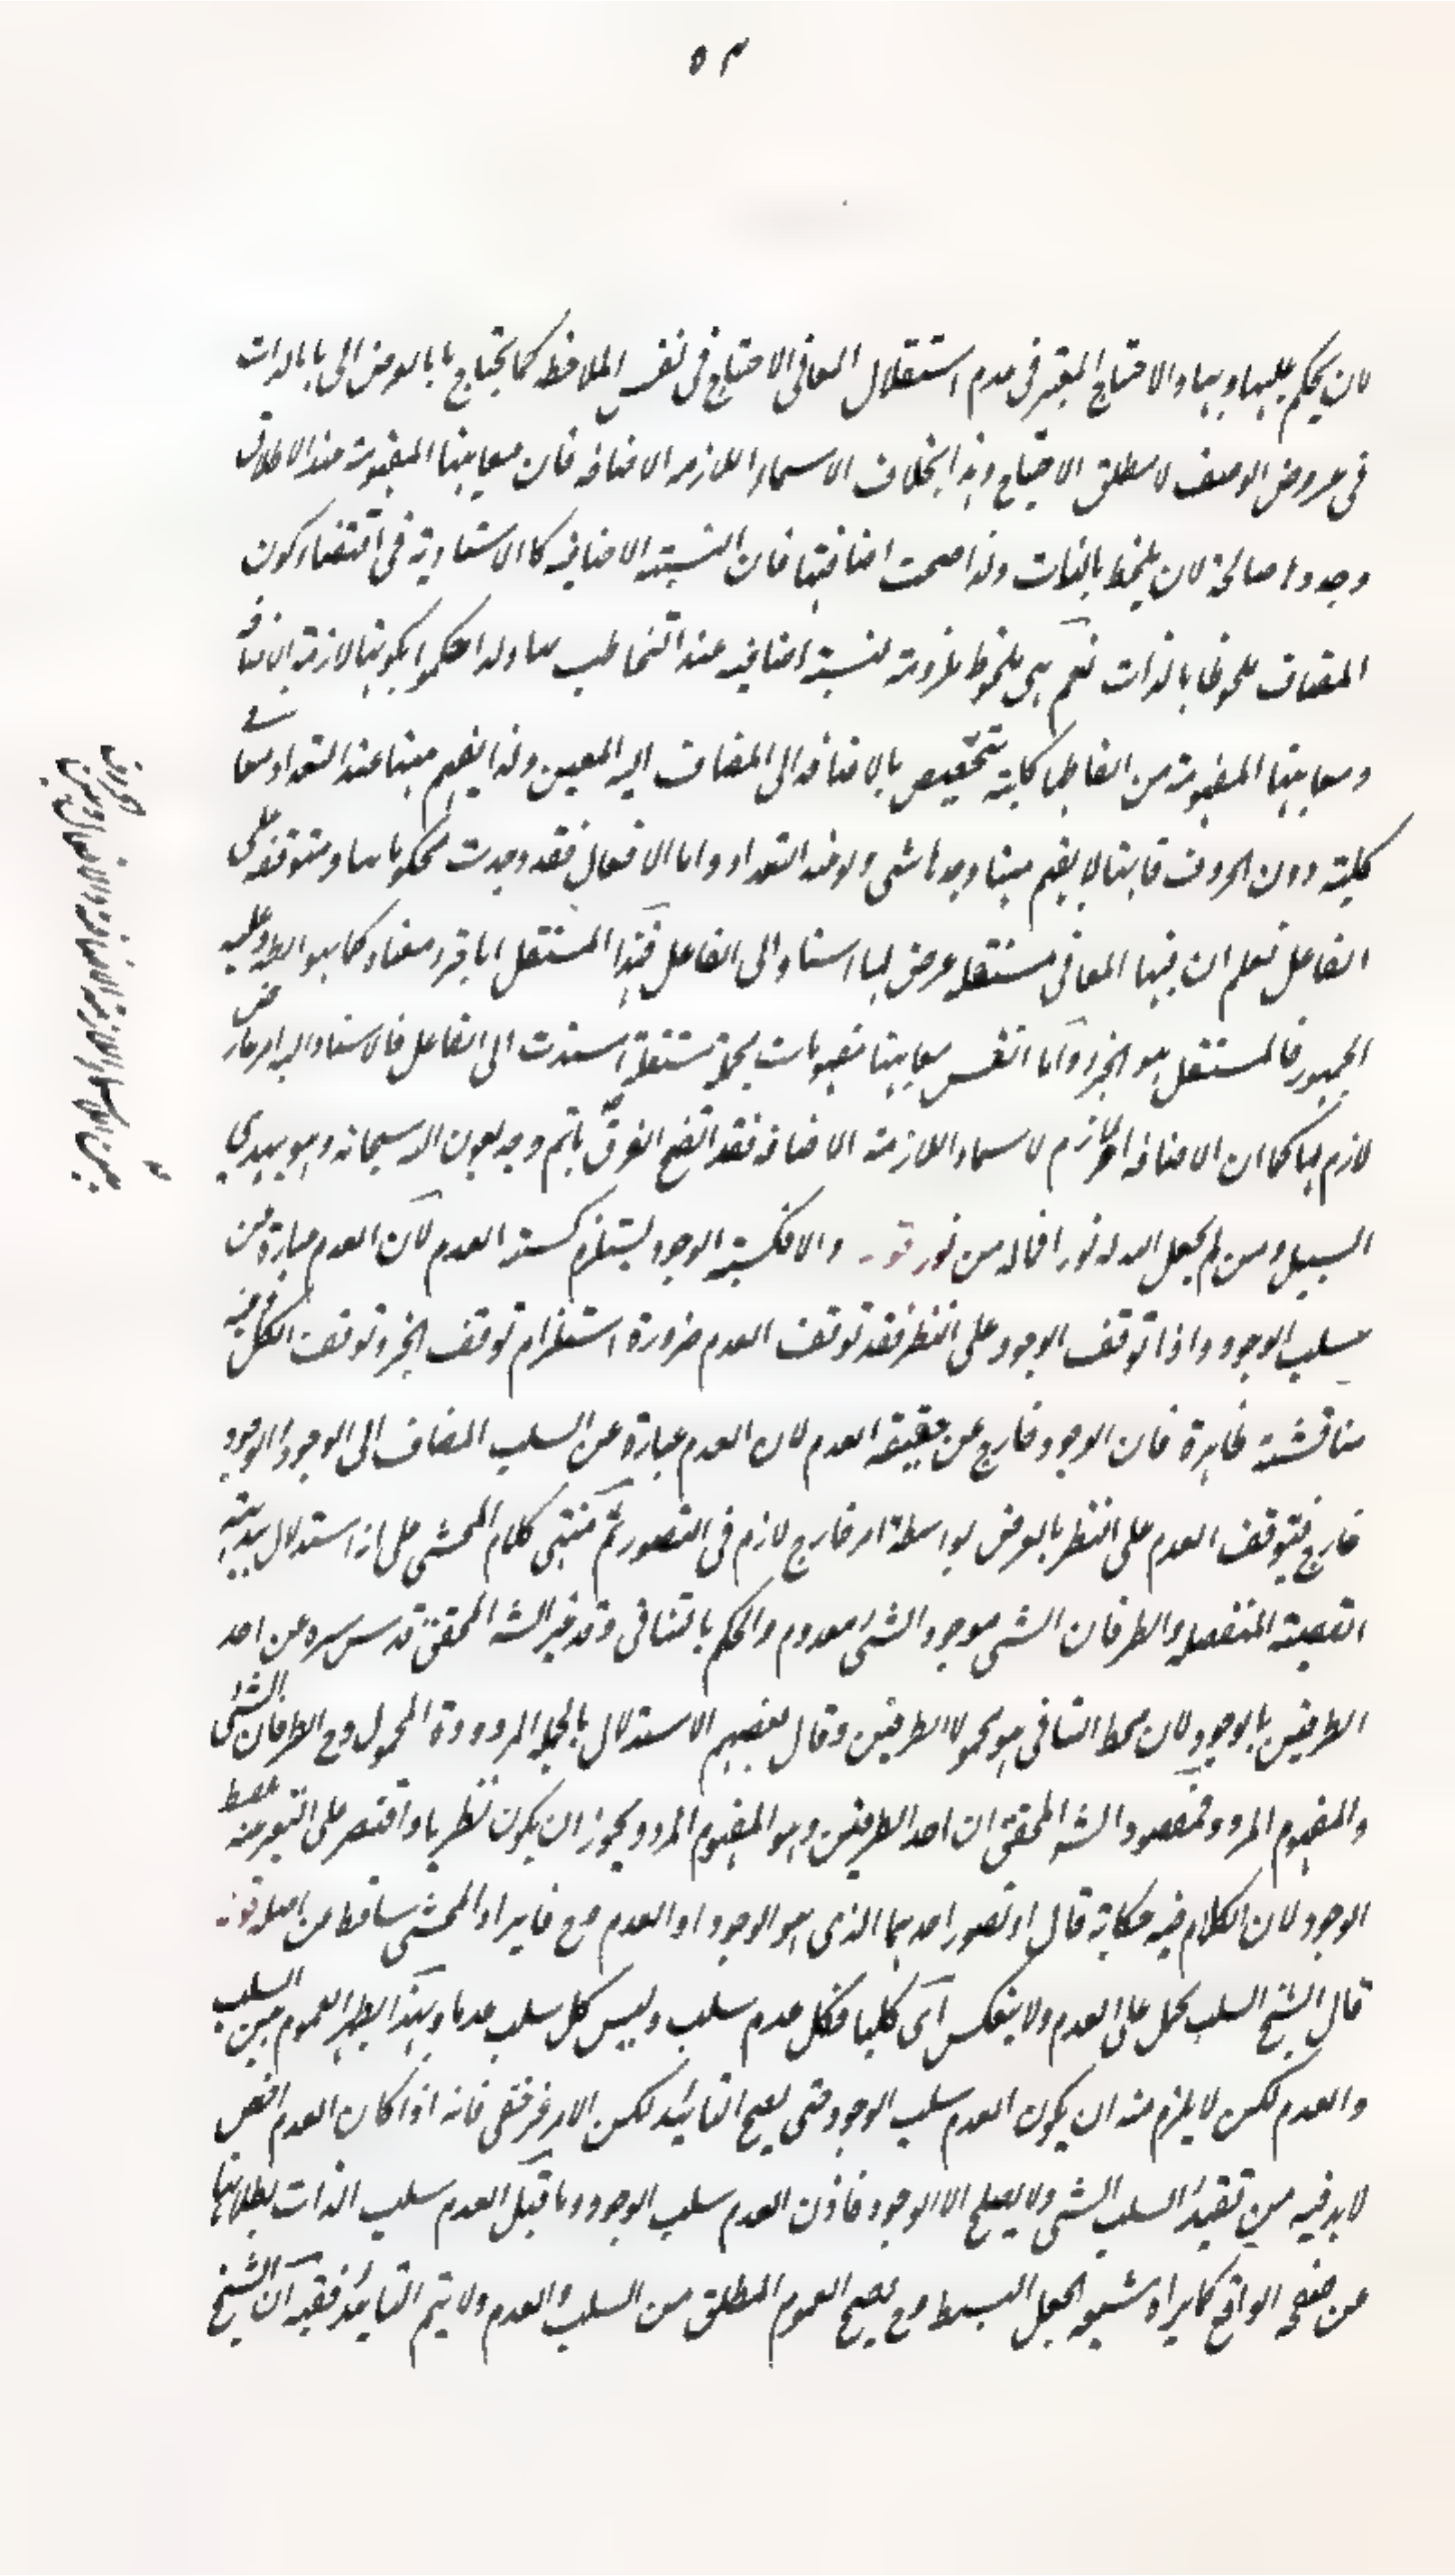 ٥٣
لان يحكم عليها وبها والاحتياج المعتبر فى عدم استقلال المعانى الاحتياج فى نفس الملاحظة كما يحتاج ما بالعرض الى ما بالذات
فى عروض الوصف لا مطلق الاحتياج وهذا بخلاف الاسماء اللازمة الاضافة فان معانيها المفهومة عند الاطلاق
وجدوها صالحة لان يلحظ بالذات ولذا صحت اضافتها فان النسبة الاضافية كالاسنادية فى اقتضاء كون
المضاف ملحوظا بالذات نعم هى ملحوظة ملزومة لنسبة اضافية عند التخاطب بها ولذا حكموا بكونها لازمة الاضافة
ومعانيها المفهومة من الفاظها كلية تتخصص بالاضافة الى المضاف اليه المعين ولذا يفهم منها عند التعداد معانى
كلية دون الحروف فانها لا يفهم منها وحدها شى ولو عند التعداد واما الافعال فقد وجدت محكوما بها ومتوقفة على
الفاعل فعلم ان فيها المعانى مستقلة عرض لها اسناد الى الفاعل فهذا المستقل اما جزء معناه كما هو المطرد وعليه
الجمهور فالمستقل هو الجزء واما انفس معانيها مفهومات مجملة مستقلة اسندت الى الفاعل فالاسناد اليه امر عارض
لازم لها كما ان الاضافة امر لازم لاسماء اللازمة الاضافة فقد اتضح الفرق باتم وجه بعون الله سبحانه وهو يهدى
السبيل ومن لم يجعل الله له نورا فما له من نور قوله والا فكسبية الوجود يستلزم كسبية العدم لان العدم عبارة عن
سلب الوجود واذا توقف الوجود على النظر فقد توقف العدم ضرورة استلزام توقف الجزء توقف الكل وفيه
مناقشة ظاهرة فان الوجود خارج عن حقيقة العدم لان العدم عبارة عن السلب المضاف الى الوجود والوجود
خارج فيتوقف العدم على النظر بالعرض بواسطة امر خارج لازم فى التصور ثم مبنى كلام المحشى على انه استدلال ببديهة
القضية المنفصلة والطرفان الشى موجود الشى معدوم والحكم بالتنافى وقد عبر الشه المحقق قدس سره عن احد
الطرفين بالوجود لان محط التنافى هو محمولا الطرفين وقال بعضهم الاستدلال بالحملية المرددة المحمول وح الطرفان الشى
والمفهوم المردد فمقصود الشه المحقق ان احد الطرفين وهو المفهوم المردد يجوز ان يكون نظريا واقتصر على التعبير منه على
الوجود لان الكلام فيه فكانه قال او تصور احدهما الذى هو الوجود او العدم وح فايراد المحشى ساقط من اصله قوله
قال الشيخ السلب يحمل على العدم ولا ينعكس اى كليا فكل عدم سلب وليس كل سلب عدما وبهذا يظهر العموم بين السلب
والعدم لكن لا يلزم منه ان يكون العدم سلب الوجود حتى يصح التائيد لكن الامر غير خفى فانه اذا كان العدم اخص
لا بد فيه من تقييد السلب الشى ولا يصلح الا الوجود فاذن العدم سلب الوجود وما قيل العدم سلب الذات بطلانها
عن صفحة الواقع كما يراه متبعو الجعل البسيط وح يصح العموم المطلق من السلب والعدم ولا يتم التائيد ففيه ان الشيخ